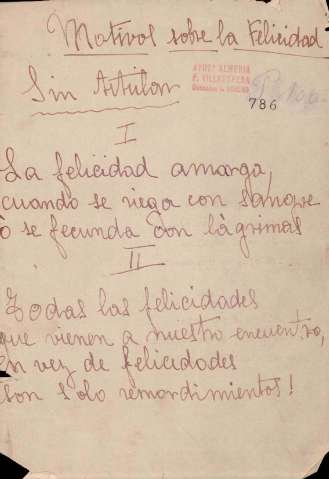 Motivos sobre la Felicidad
Sin titular
AYUNT ALMERIA
F. VILLAESPESA
786
I
La felicidad amarga,
cuando se riega con sangre
ó se fecunda con lágrimas
II
Todas las felicidades
que vienen a nuestro encuentro,
en vez de felicidades
son solo remordimientos!